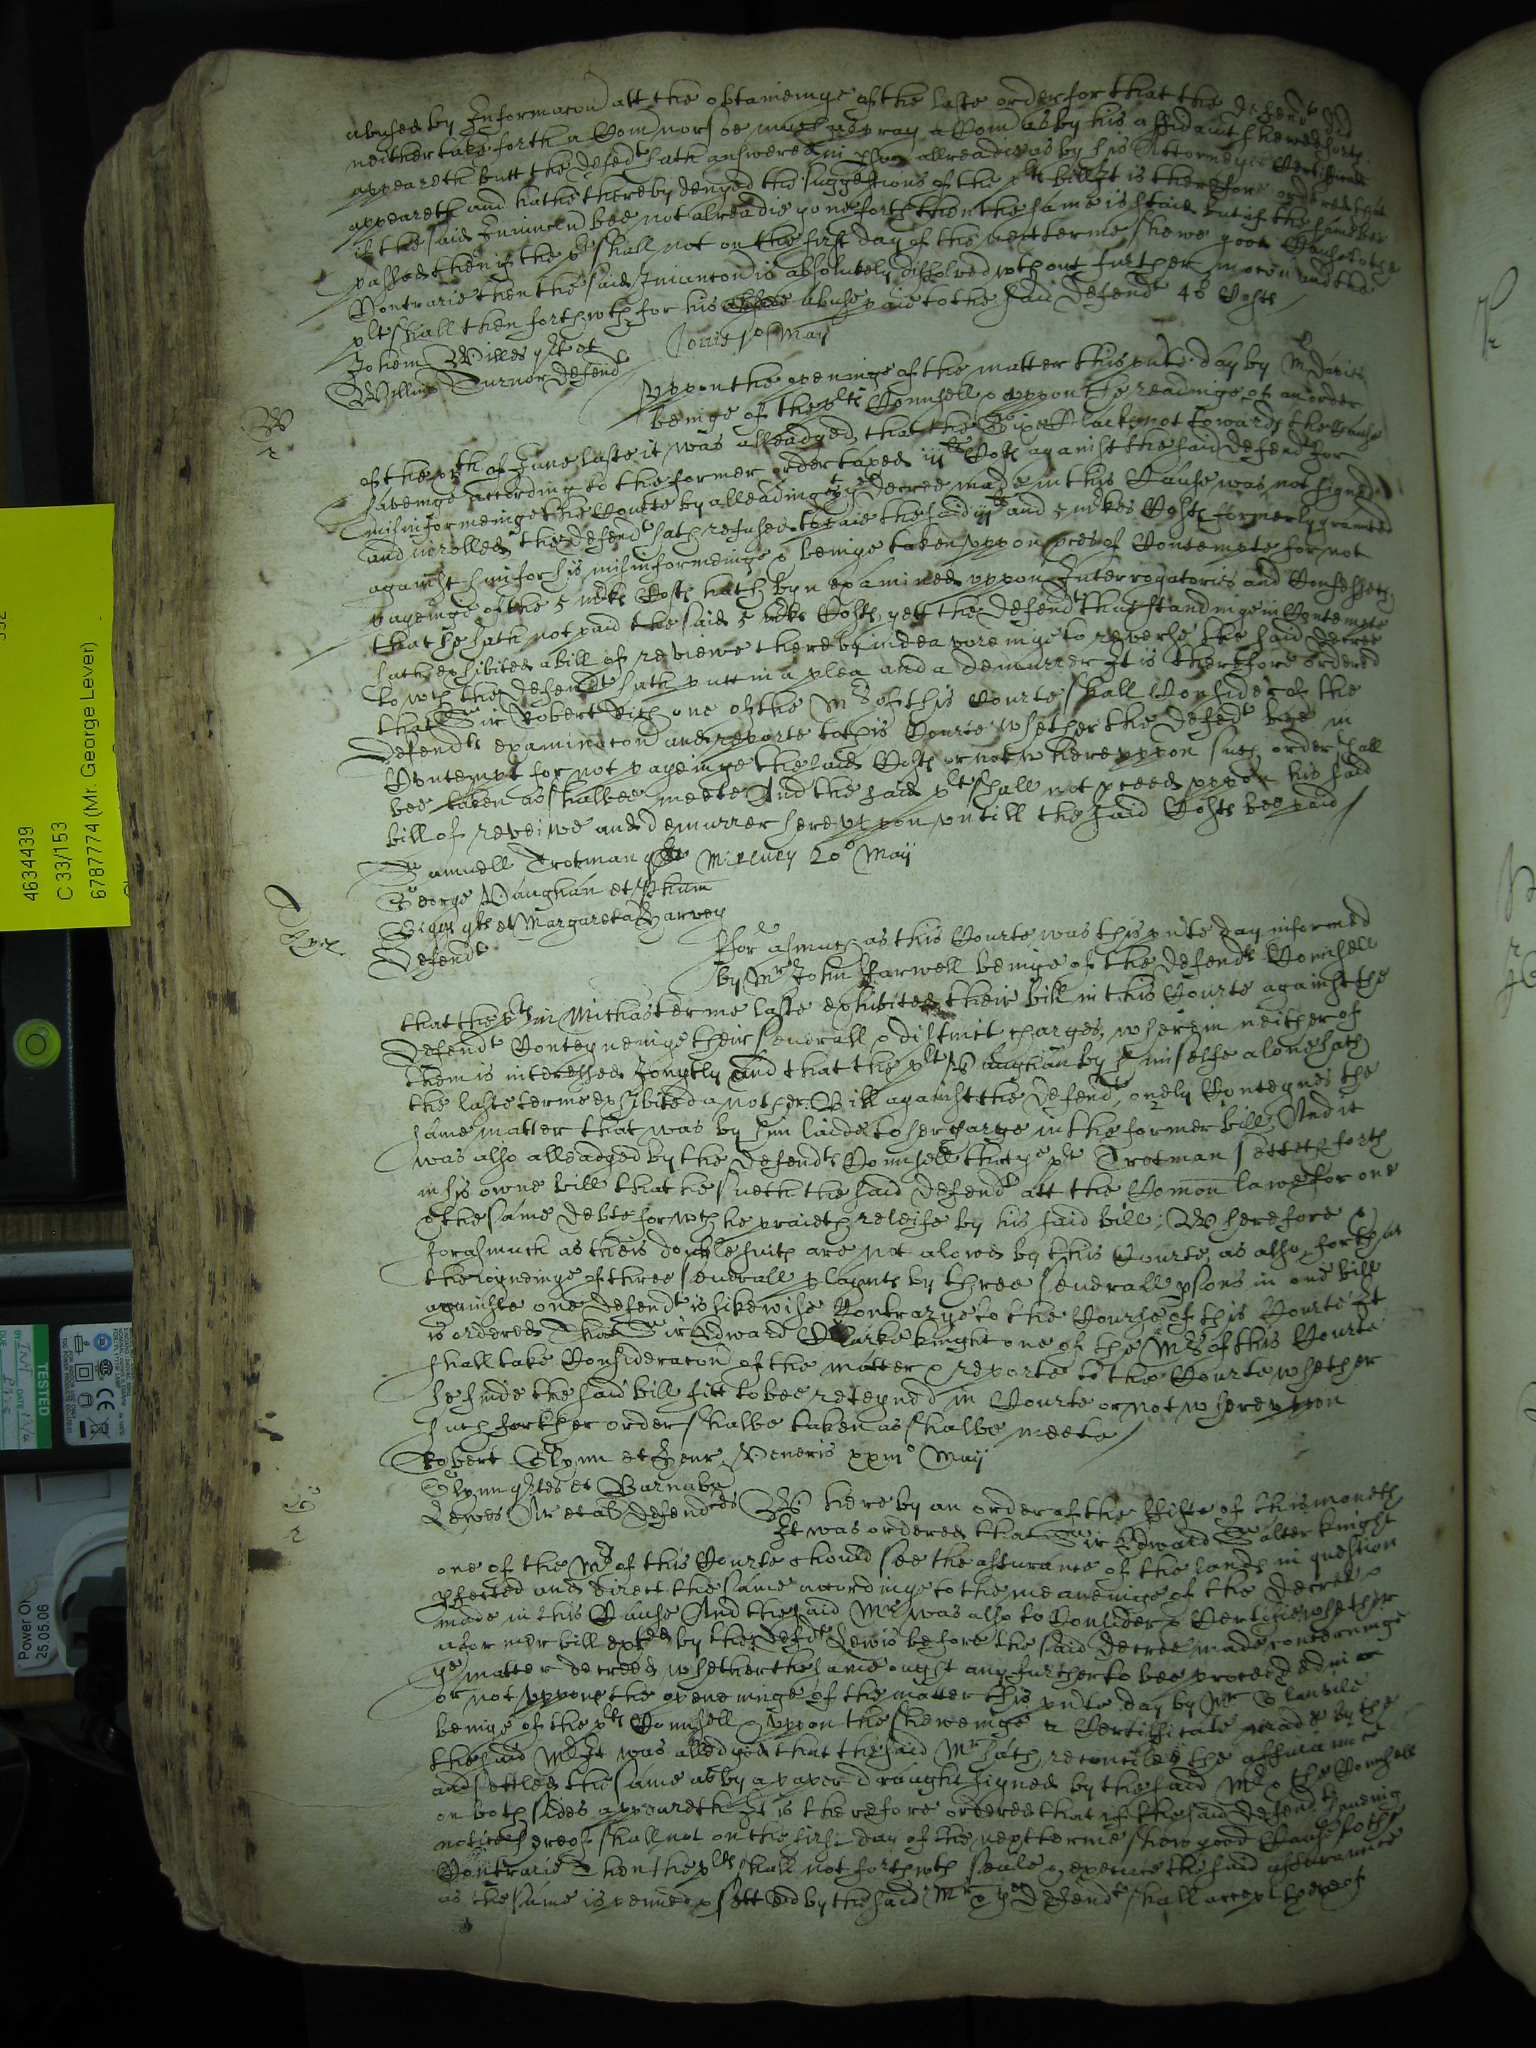 abused by Informacon att the obtaineinge of the laste order for that the defendt did
neither take forth a Com nor soe much as pray a Com as by his affidavit shewed forth
appeareth butt the defendt hath answered in allreadie as by his Attorneyes Certificate
appeareth and hathe thereby denyed the suggestions of the plts bill It is therefore ordered that
if the said Iniunccn bee not alreadie gone forth then the same is staied but if the same bee
passed then if the plt shall not on the first day of the next terme shewe good Cause to the
Contrarie then the said Iniuncon is absolutely dissolved wthout further mocon and the
plt shall then forthwth for his abuse paie to the said defendt 40s Costs
Jovis May
Willes plt et
Willim Turnor defendt
Uppon the openinge of the matter this pnte day by Mr Davies
beinge of the plts Counsell & uppon the readinge of an order
of the xth of June laste it was alleadged that the Six Clarke not towards the Cause
haveinge accordinge to the former order taxed iijli Costs against the said defendt for
misinformeinge the Courte by alleadginge ye decree made in this Cause was not signed
and inrolled the defendt hath refused to paie the said iijli and 5 mkes Costs formerly graunted
against him for his misinformeinge & beinge taken uppon pces of Contempte for not
payeinge of the 5 mks Costs hath byn examined uppon Interrogatories and Confesseth
that he hath not paid the said 5 mks Costs yett the defendt thus standinge in Contempte
hath exhibited a bill of reviewe thereby indeavoreinge to reverse the said decree
to wch the defendt hath putt in a plea and a demurrer It is therefore ordered
that Sir Robert Rich one of the Mrs of this Courte shall Consider of the
defendts examinacon and reporte to this Courte whether the defendt bee in
Contempt for not payeinge the said Costs or not whereuppon such order shall
bee taken as shalbee meete And the said plt shall not pceed uppon his said
bill of reveiwe and demurrer hereuppon untill the said Costs bee paid
Samuell Trotman Mercurij 20o Maij
George Vaughan et
Biggs plts et Margareta Harvey
Defendt
Forasmuch as this Courte was this pnte day informed
by Mr John Farwell beinge of the defendts Counsell
that the plts in Michas terme laste exhibited their bill in this Courte against the
Defendt Conteyneinge their severall & distinct charges wherein neither of
them is interessed Joyntly and that the plt Vaughan by himselfe alone hath
the laste terme exhibited another Bill against the Defendt onely Conteynes the
same matter that was by him laide to her charge in the former bill And it
was also alleadged by the defendts Counsell that ye plt Trotman setteth forth
in his owne bill that he sueth the said defendt att the Comon lawe for one
& the same debte for wch he praieth releife by his said bill, Wherefore &
forasmuch as theis double suits are not alowed by this Courte, as also for that
the ioyneinge of three severall playnts by three severall psons in one bill
againste one defendt is likewise Contrarye to the Course of this Courte It
is ordered That Sir Edward Clarke knight one of the Mrs of this Courte
shall take Consideracon of the matter & reporte to the Courte whether
he finde the said bill fitt to bee reteyned in Courte or not whereuppon
such further order shalbe taken as shalbe meete
Robert Glynn et Henr Veneris May
Glynn plts et Barnabe
Lewes Ar et al defendtes
Where by an order of the fifte of this moneth
It was ordered that Sir Edward Salter knight
one of the Mrs of this Courte should see the assurance of the lands in question
pfected and direct the same accordinge to the meaneinge of the decree
made in this Cause And the said Mr was also to Consider & Certifie whether
a former bill exhted by the defendt Lewis before the said decree made concerninge
ye matter decreed whether the same ought any further to bee proceeded in
or not uppon the openeinge of the matter this pnte day by Mr Glanvile
beinge of the plts Counsell & uppon the sheweinge a Certifficate made by the
the said Mr It was alledged that the said Mr hath reconciled the assurance
and settled the same as by a paper draught signed by the said Mr & the Counsell
on both sides appeareth It is therefore ordered that if the said defendts haveing
notice hereof shall not on the first day of the next terme shew good Cause to the
Contrarie then the plts shall not forthwth seale & execute the said assurance
as the same is penned & settled by the said Mr & the defendts shall accept thereof
4634439
C 33/153
6787774 (Mr. George Lever)
TESTED
Power Of
25.05.06